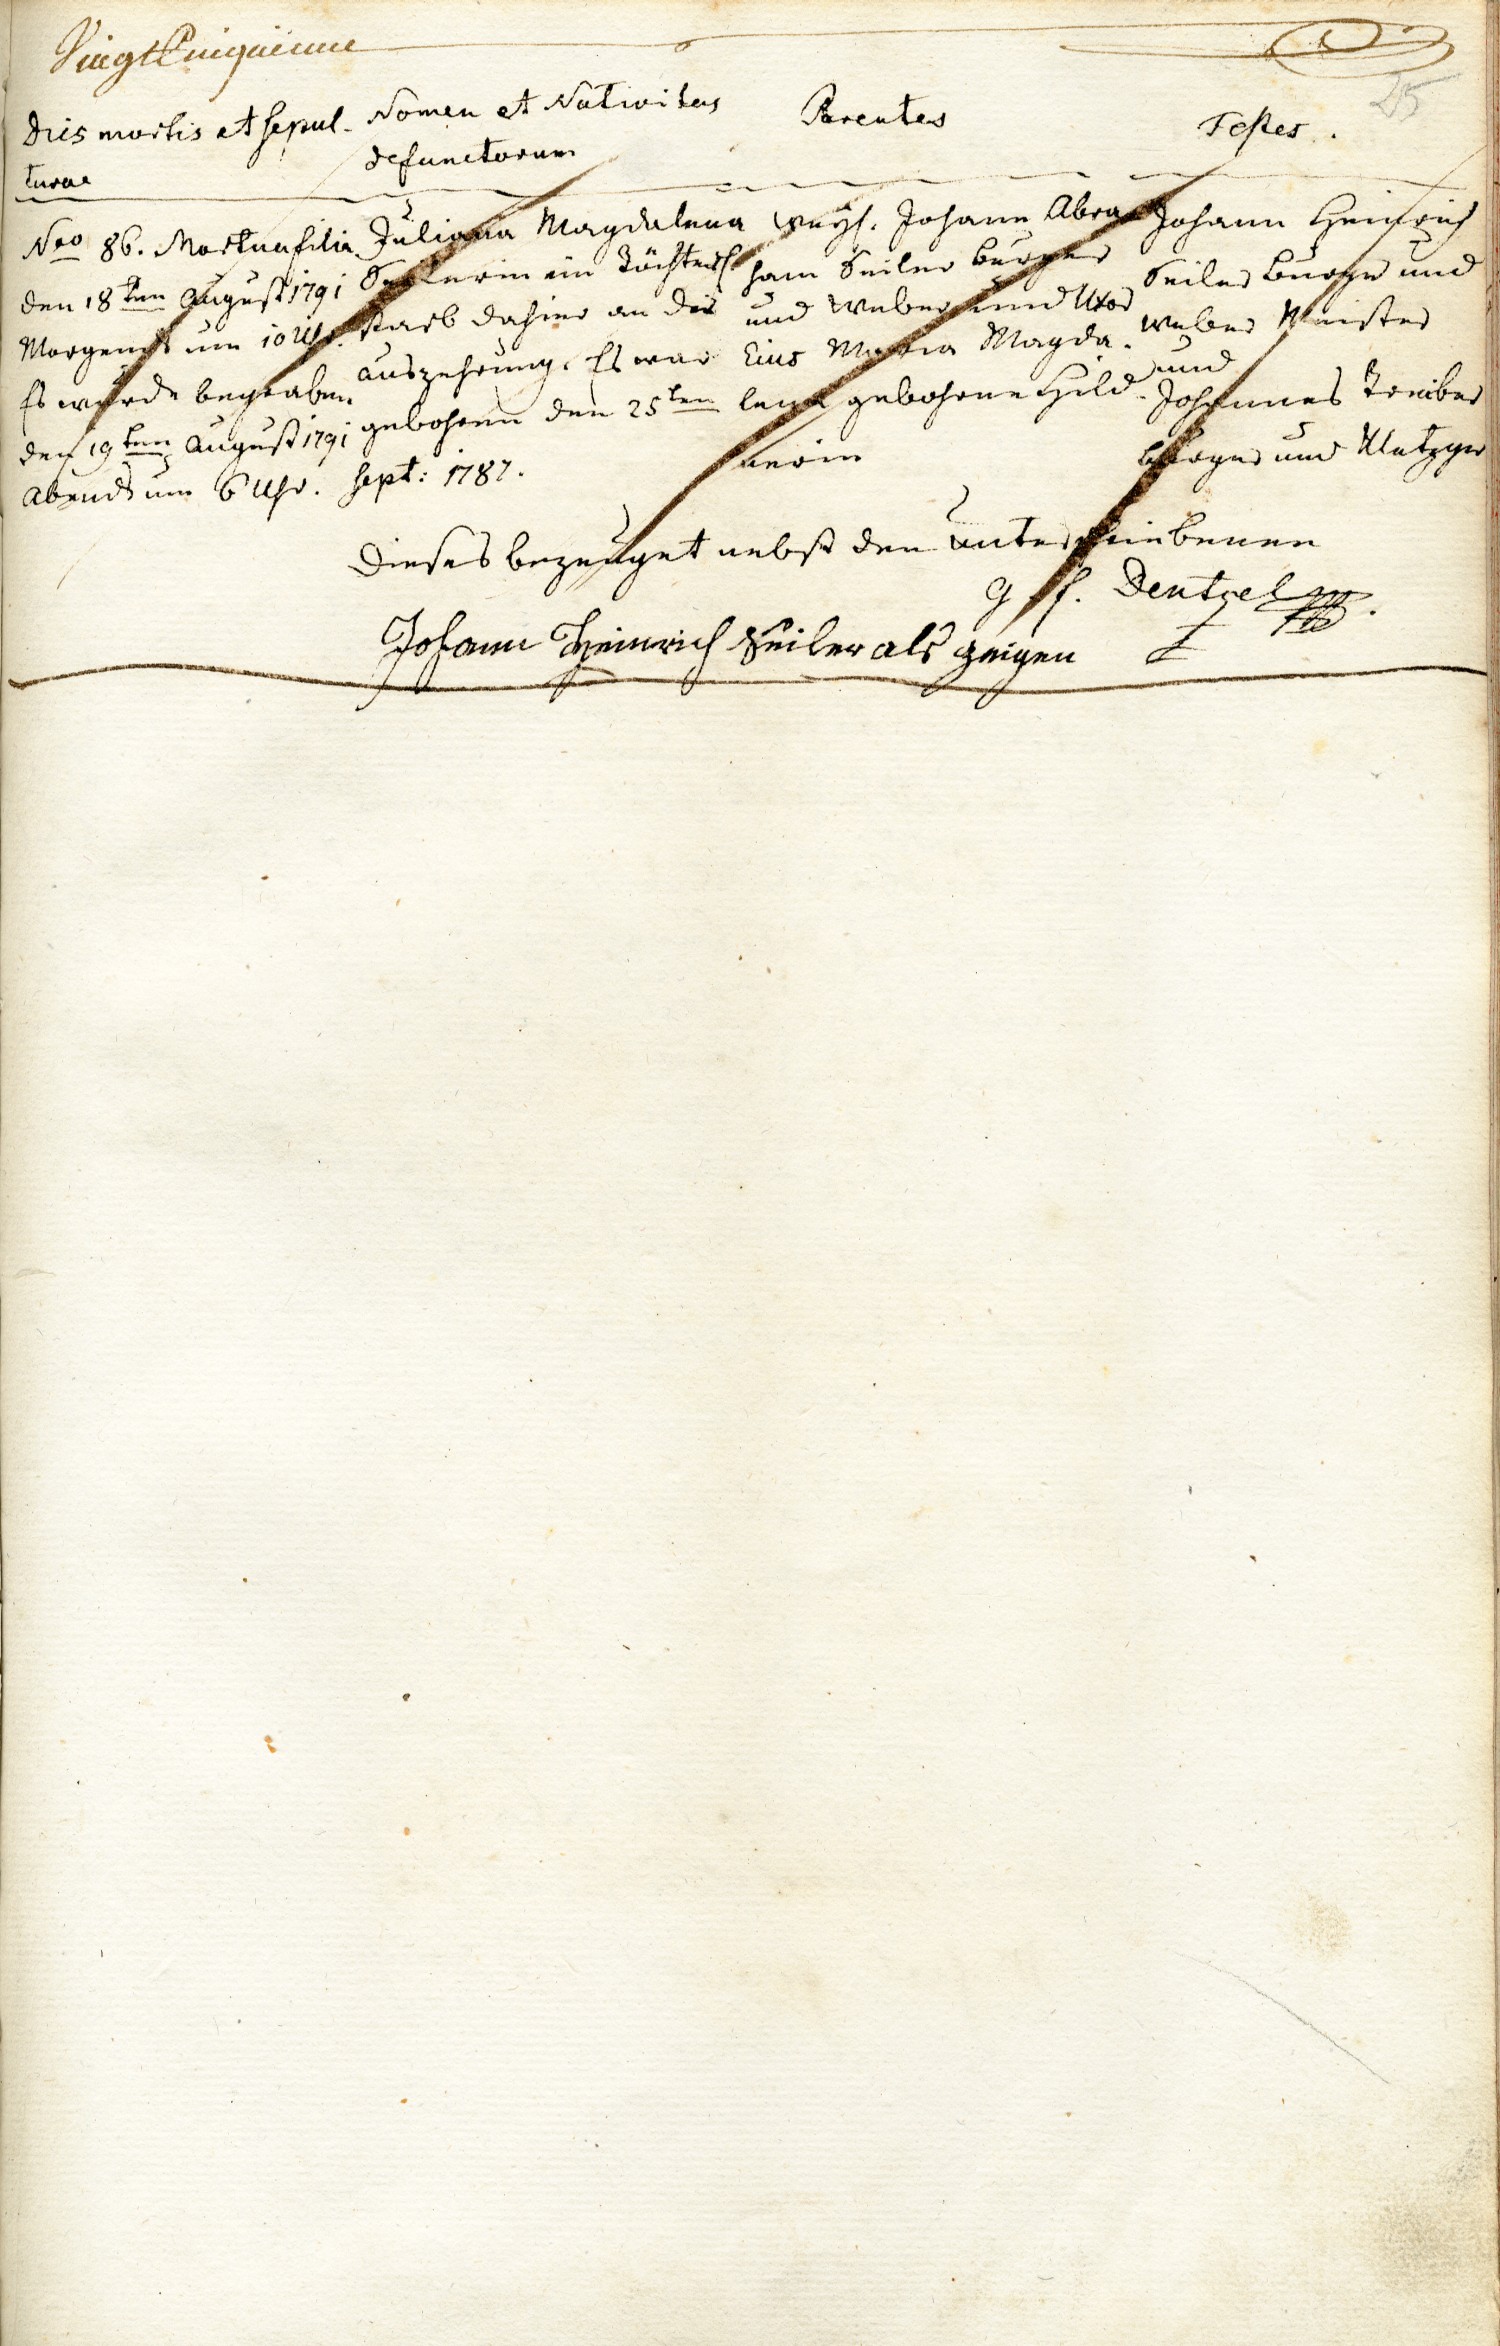 Vingt Cinquieme
25
Dies mortis et sepul-
turae
Nomen et Nativitas
defunctorum
Parentes
Testes.
Nro 86. Mortua filia
den 18ten August 1791
Morgens um 10 Uhr.
Es wurde begraben
den 19ten August 1791
Abends um 6 Uhr.
Juliana Magdalena
Seilerin ein Töchterl.
starb dahier an der
Auszehrung. Es war
gebohren den 25ten
Sept: 1787.
weyl. Johann Abra
ham Seiler burger
und Weber und Uxor
Eius Maria Magda-
lena gebohrene Hild-
nerin
Johann Heinrich
Seiler Burger und
Weber Meister
und
Johannes
burger und Metzger
Dieses bezeuget nebst den unterschriebenen
G. F. Dentzel
Johann Heinrich Seiler als zeigen